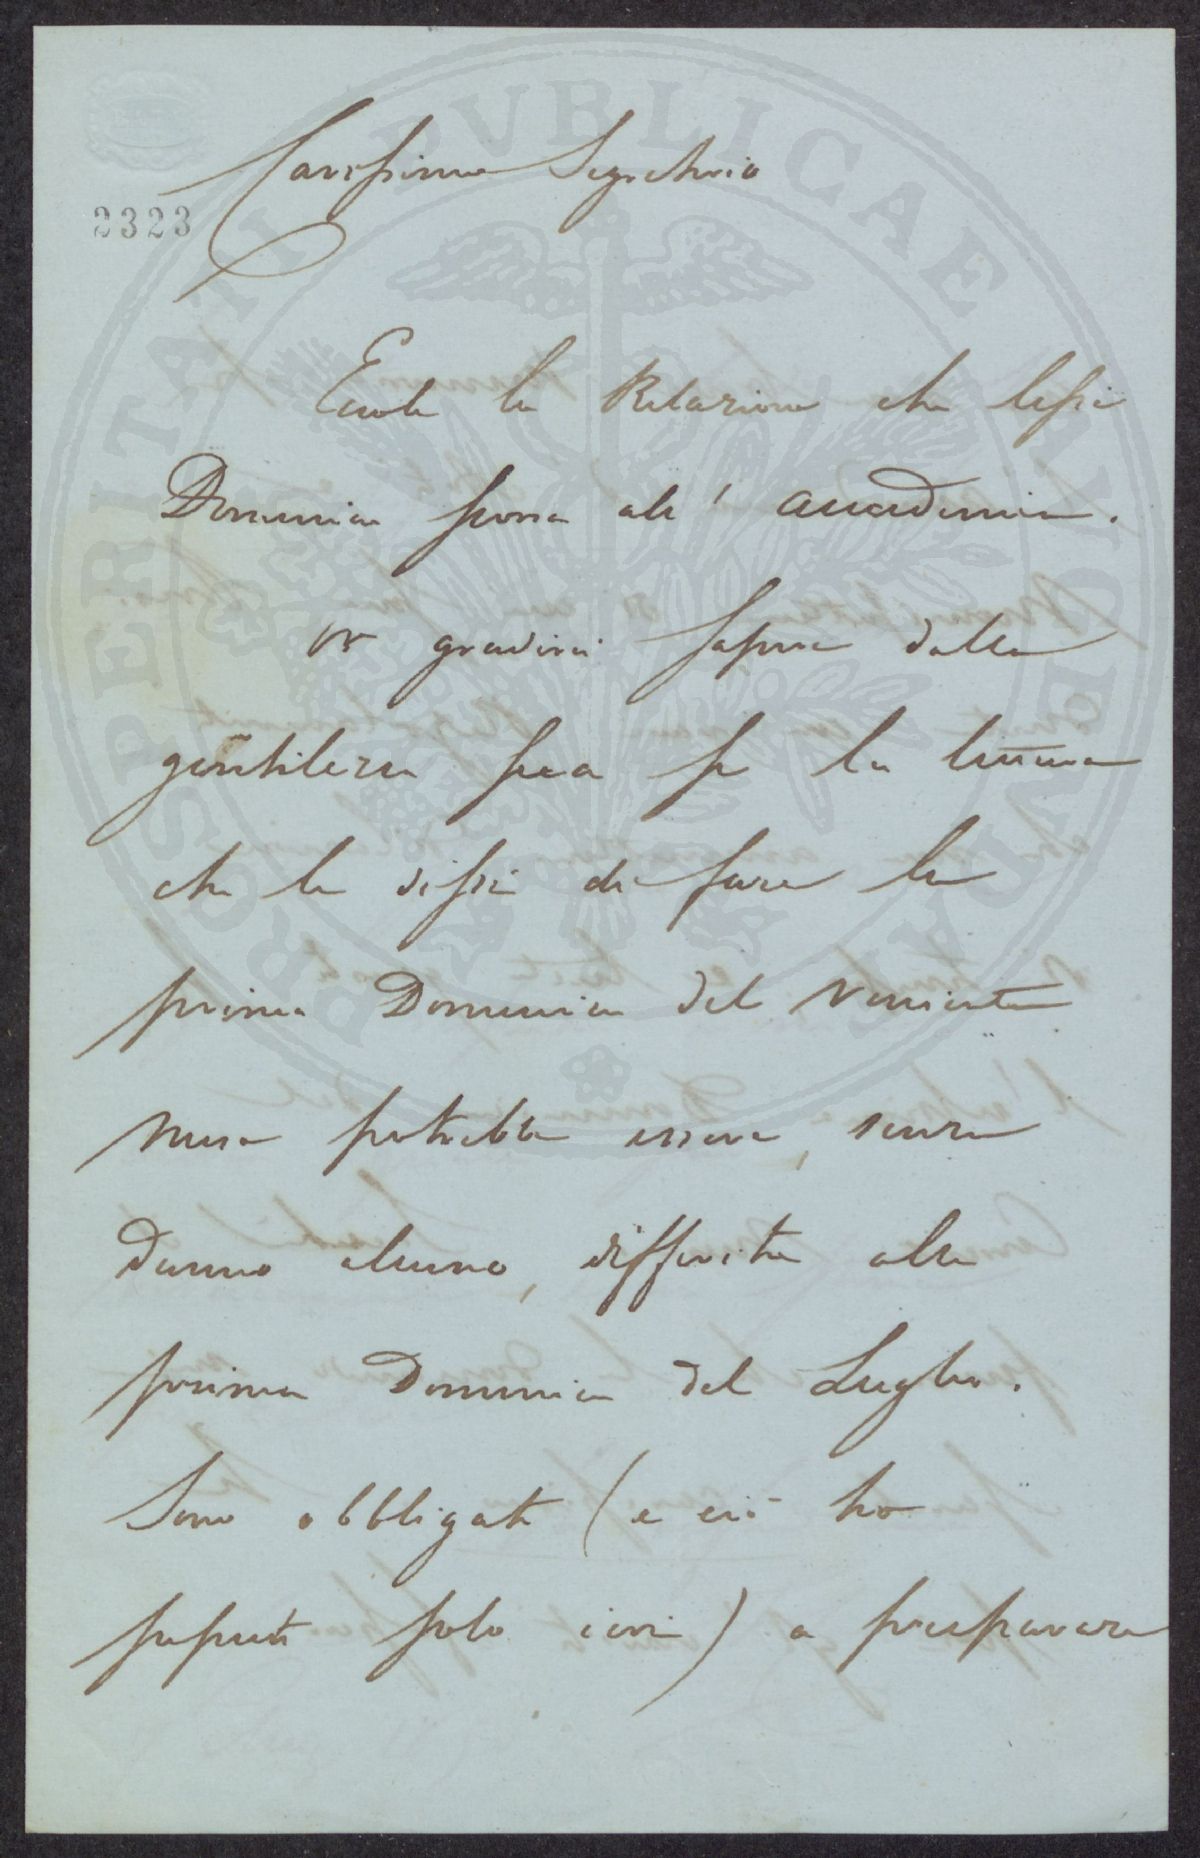 2323
Carissimo Segretario
Eccole la Relazione che lessi
Domenica scorsa all' Accademia.
Or gradirei sapere dalla
gentilezza sua se la lettura
che le dissi di fare la
prima Domenica del veniente
mese potrebbe essere, senza
danno alcuno, differita alla
prima Domenica del Luglio.
Sono obbligato (e ciò ho
saputo solo ieri) a preparare
PROSPERITATI PVBLICAE AVGENDAE